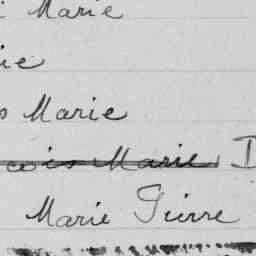 Marie
ie
s Marie
cois Marie D
Marie Pierre